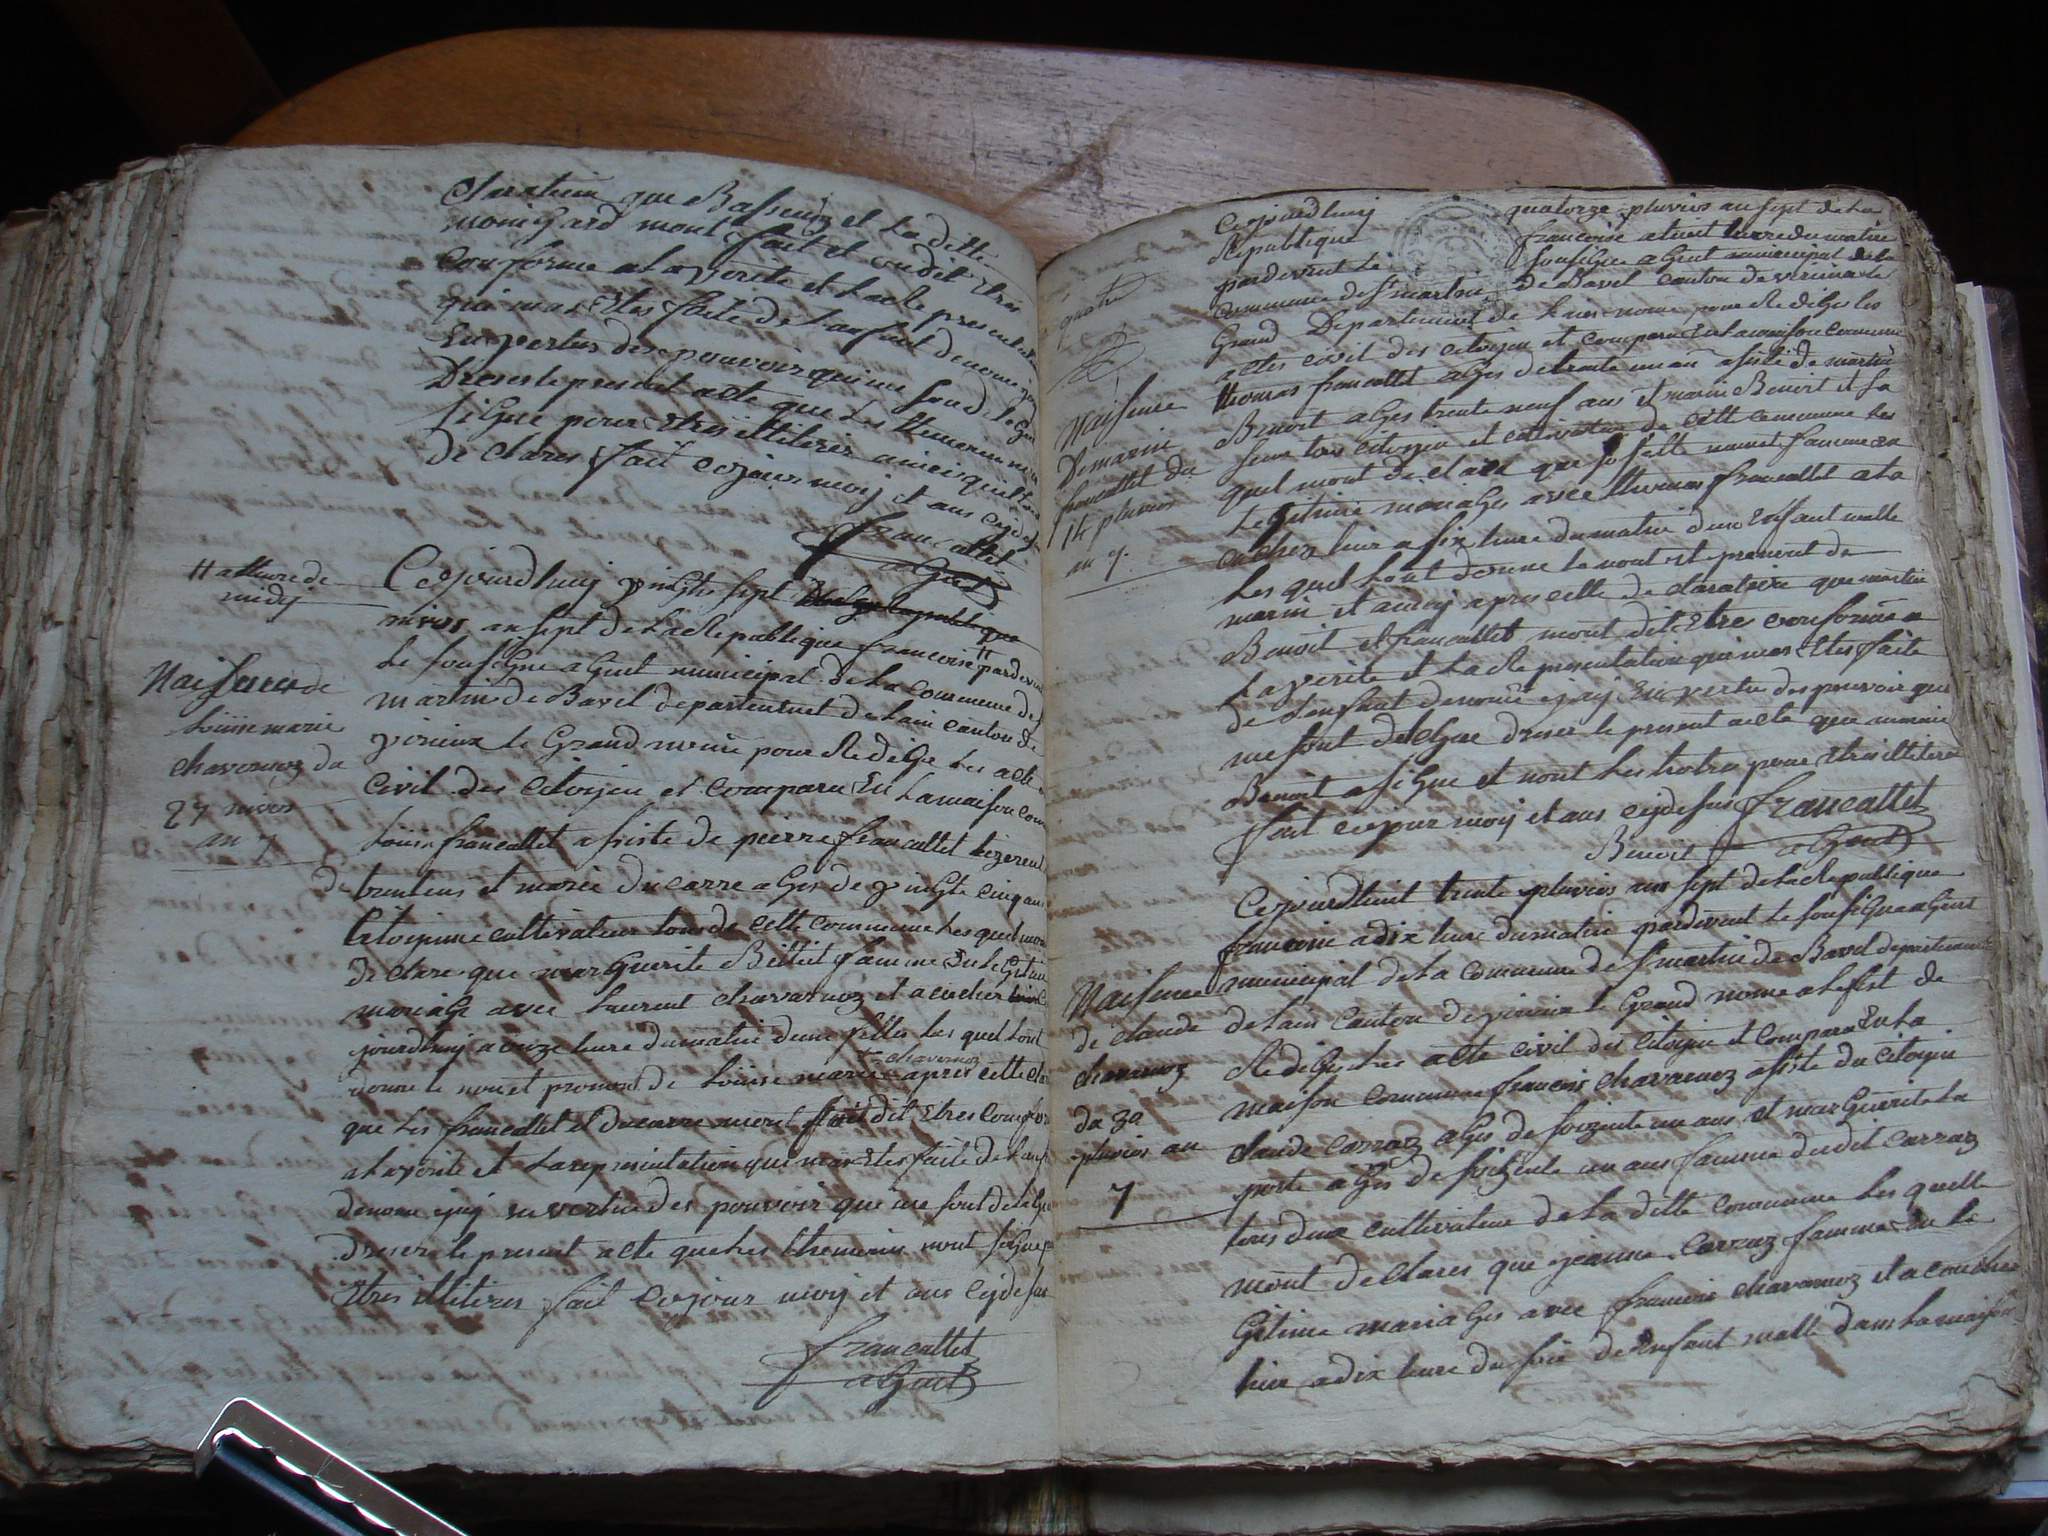 claration que Basseuoz et La ditte
monigard mont fait et ondit Etres
Conforme ala verite et La Re presentation
qui mas Etes faite de Lanfant denome
En vertus des pouvoir qui me sont
Dreser le present acte que Les
signe pour Etres illiteres ainci
de clares fait cejour moy et ans cydesu
francallet
agent
H a lheure de
midy
Cejourdhuy vingts sept
nivos an sept de La Republique francoise H pardevant
Le sousigne agent municipal de La Commune de
martin de Bavel departement de Lain canton de
virieux Le Grand nome pour Redige Les acte
civil des citoyen et comparu En La maison com
Naisence de
Louise marie
chavornoz du
27 nivos
an 7
Louise francallet asiste de pierre francallet
de trente ans et marie Ducarre ages de vingts cinq ans
Citoyenne cultivateur tous de cette commune Les quel mon
de clare que marguerite Billiet famme En Legitime
mariage avec Laurent chavarnoz et acucher
jourdhuy a onze heure du matin dune filles Les quel Lont
chavornoz
donne le nom et prenom de Louise marie apres cette
que Les francallet et Ducarre mont fait dit Etres Conform
ala verite et La representation qui mas Etes faite de Lanf
denome ejay en vertu des pouvoir que me sont delegue
Dreser le present acte que Les themoins nont signe p
Etres illiteres fait cejour moy et ans cydesus
francallet
agent
Cejourdhuy quatorze pluvios an sept de La
Republique francoise a huit heure du matin
pardevant Le sousigne agent municipal de la
commune de St martin de Bavel canton de virieux le
Grand Departement de Lain nome pour Redige les
actes civil des citoyen et comparu En La maison commune
thomas francallet ages de trente un an asiste de martin
Benoit ages trente neuf ans et marie Benoit et sa
seur tous citoyen et cultivateur de cette commune Les
quel mont de clare que fanme en
Legitime mariages avec thomas francallet ala
cuchez hier a six heure du matin dun Enfant malle
Les quel Lont donne le nom et prenom de
marin et aincy apres cette de claration que martin
Benoit et francallet mont dit Etres conforme a
La verite et La Re presentation qui mas Etes faite
de Lenfant denome ejay En vertu des pouvoir que
me sont delegue dreser le present acte que martin
Benoit a signe et nont Les hotres pour Etres illiteres
fait cejour moy et ans cydesus francallet
Benoit agent
quatre
Naisence
De marin
francallet du
14 pluvios
an 7
Cejourdhuit trente pluvios an sept de La Republique
francoise a dix heure du matin pardevant Le sousigne agent
municipal de La commune de St martin de Bavel departement
de Lain canton de virieux le Grand nome a lefet de
Redige Les acte civil des citoyen et compara En La
maison commune francois chavarnoz asiste du citoyen
claude carraz ages de soizente un ans et marguerite La
porte ages de soizente un ans famme du dit carraz
tous deux cultivateur de La ditte commune Les quelle
mont declares que jeanne Carraz famme en Le
Gitime mariages avec francois chavarnoz et a coucher
hier a dix heure du soir de Enfant malle dans La maison
Naisence
de claude
chavarnoz
du 30
pluvios an
7